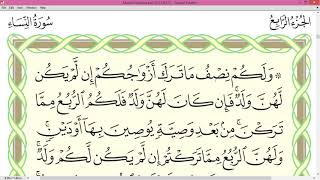 سُورَةُ النِّسَاءِ
الجُزْءُ الرَّابِعُ
۞ وَلَكُمْ نِصْفُ مَا تَرَكَ أَزْوَٰجُكُمْ إِن لَّمْ يَكُن
لَّهُنَّ وَلَدٌ ۚ فَإِن كَانَ لَهُنَّ وَلَدٌ فَلَكُمُ ٱلرُّبُعُ مِمَّا
تَرَكْنَ ۚ مِنۢ بَعْدِ وَصِيَّةٍ يُوصِينَ بِهَآ أَوْ دَيْنٍ ۚ
وَلَهُنَّ ٱلرُّبُعُ مِمَّا تَرَكْتُمْ إِن لَّمْ يَكُن لَّكُمْ وَلَدٌ ۚ